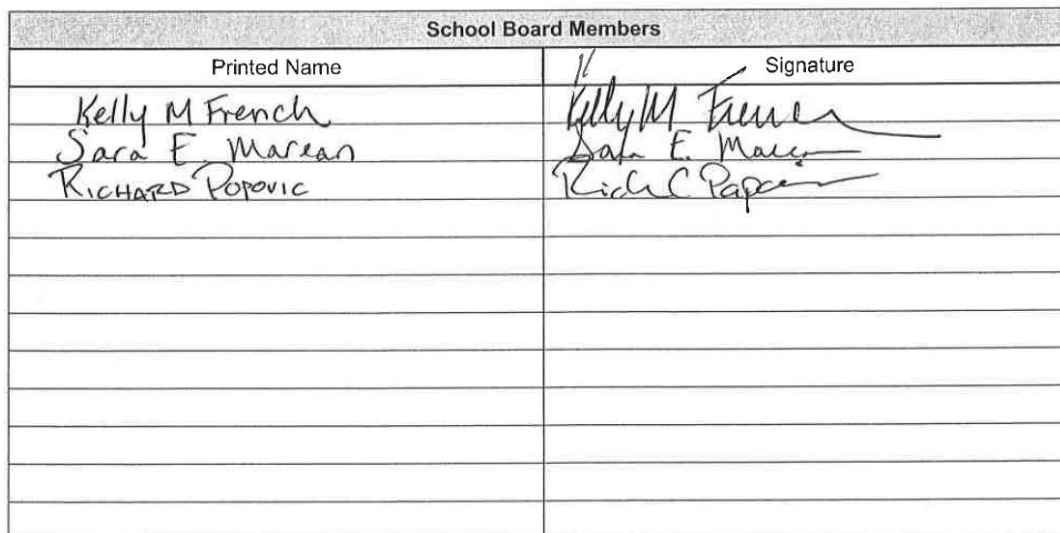 School Board Members
Printed Name Signature
Kelly M French Kelly M French
Sara E. Marean Sara E. Marean
RICHARD POPOVIC Rich C